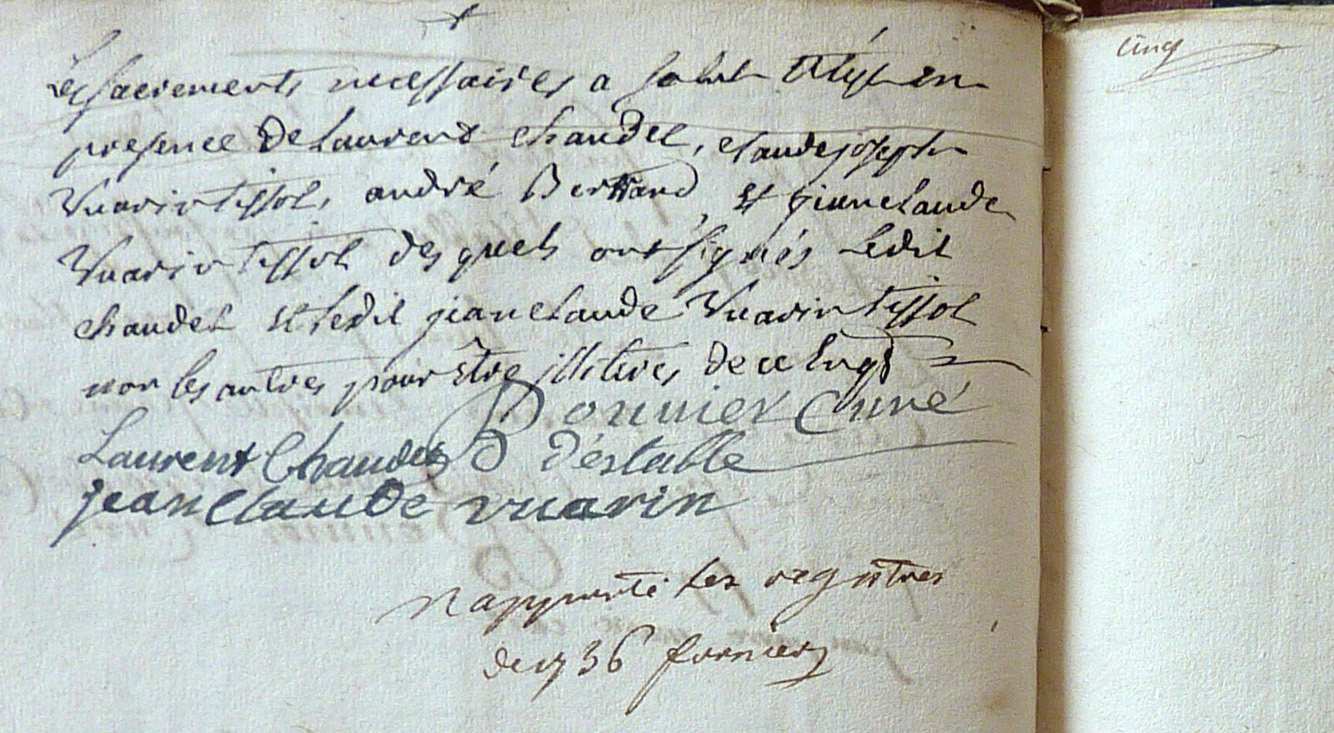 Les sacrements necessaires a
presence de Laurent Chaudel, claude joseph
Vuarin tissot, andré Bertrand, et jean claude
Vuarin tissot des quels ont signés Ledit
chaudel et ledit jean claude Vuarin tissot
non les autres pour être illiteres de ce
Bonnier Curé
Laurent Chaudel d'estable
jean Claude vuarin
les registres
de 1736
cinq